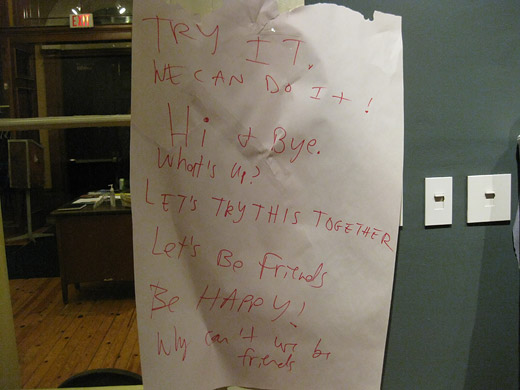 EXIT
TRY IT.
WE CAN DO It!
Hi & Bye.
What's up?
LET'S TRY THIS TOGETHER
Let's Be Friends
Be HAPPY!
Why can't we be
friends